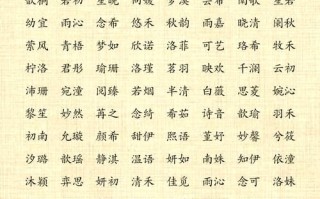 幼宜 雨沁 念希 悠禾 秋韵 雨嘉 晓清 阑秋
萤风 青梧 梦如 欣诺 洛菲 可艺 珞希 牧禾
柠洛 君彤 瑜珊 洛瑾 茗羽 映欢 千澜 云初
沛珊 宛潼 阅臻 若烟 半清 白薇 思菱 婉沁
黎笙 妙然 苒之 念绮 希茹 诗音 歆瑜 羽禾
初南 允璇 颜希 甜伊 熙语 堇妤 妙馨 兮筱
汐璐 歆瑶 静淇 温语 妍如 南姝 知伊 依潼
沐颖 弈思 妍初 清禾 佳觅 雨沁 念可 洛姝